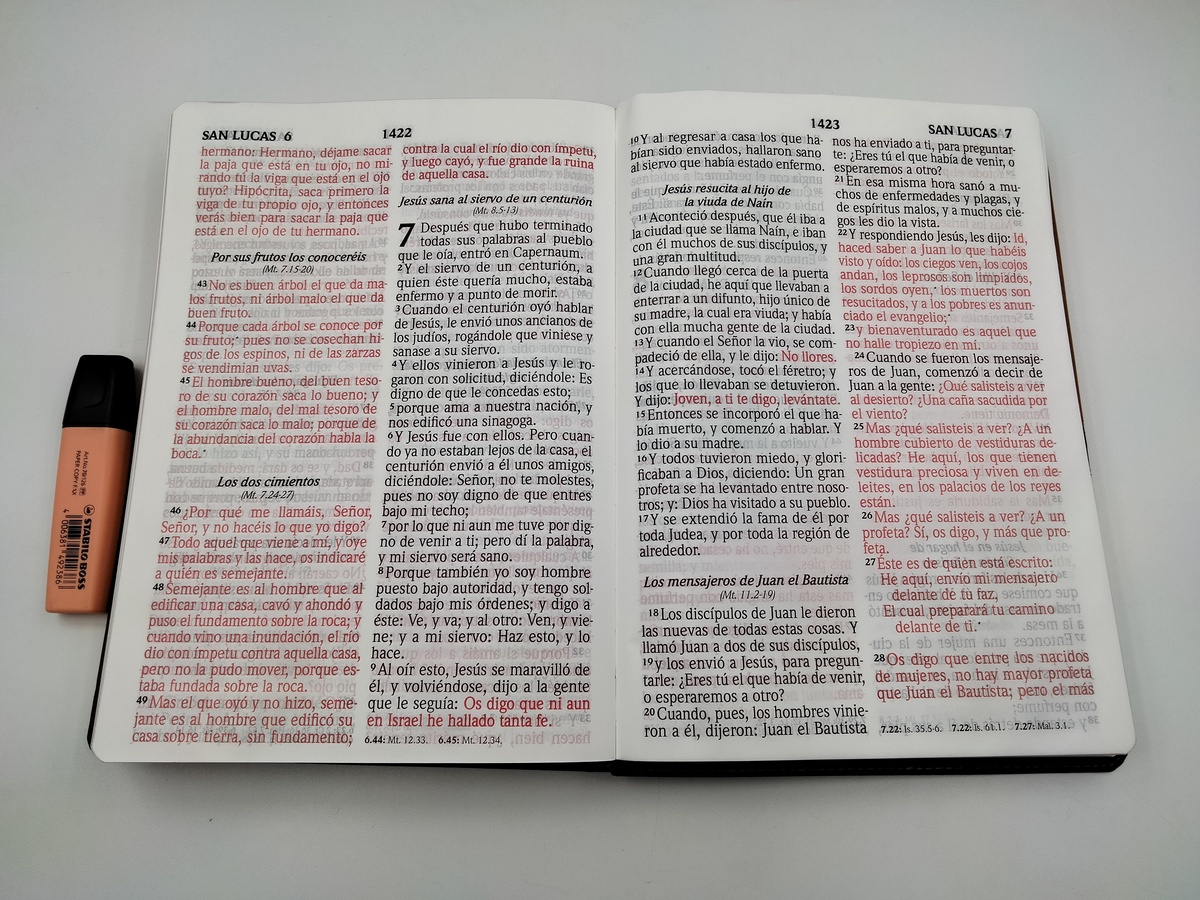 SAN LUCAS 6
1422
hermano: Hermano, déjame sacar
la paja que está en tu ojo, no mi-
rando tú la viga que está en el ojo
tuyo? Hipócrita, saca primero la
viga de tu propio ojo, y entonces
verás bien para sacar la paja que
está en el ojo de tu hermano.
Por sus frutos los conoceréis
(Mt. 7.15-20)
43 No es buen árbol el que da ma-
los frutos, ni árbol malo el que da
buen fruto.
44 Porque cada árbol se conoce por
su fruto;* pues no se cosechan hi-
gos de los espinos, ni de las zarzas
se vendimian uvas.
45 El hombre bueno, del buen teso-
ro de su corazón saca lo bueno; y
el hombre malo, del mal tesoro de
su corazón saca lo malo; porque de
la abundancia del corazón habla la
boca.*
Los dos cimientos
(Mt. 7.24-27)
46 ¿Por qué me llamáis, Señor,
Señor, y no hacéis lo que yo digo?
47 Todo aquel que viene a mí, y oye
mis palabras y las hace, os indicaré
a quién es semejante.
48 Semejante es al hombre que al
edificar una casa, cavó y ahondó y
puso el fundamento sobre la roca; y
cuando vino una inundación, el río
dio con ímpetu contra aquella casa,
pero no la pudo mover, porque es-
taba fundada sobre la roca.
49 Mas el que oyó y no hizo, seme-
jante es al hombre que edificó su
casa sobre tierra, sin fundamento;
contra la cual el río dio con ímpetu,
y luego cayó, y fue grande la ruina
de aquella casa.
Jesús sana al siervo de un centurión
(Mt. 8.5-13)
7 Después que hubo terminado
todas sus palabras al pueblo
que le oía, entró en Capernaum.
2 Y el siervo de un centurión, a
quien éste quería mucho, estaba
enfermo y a punto de morir.
3 Cuando el centurión oyó hablar
de Jesús, le envió unos ancianos de
los judíos, rogándole que viniese y
sanase a su siervo.
4 Y ellos vinieron a Jesús y le ro-
garon con solicitud, diciéndole: Es
digno de que le concedas esto;
5 porque ama a nuestra nación, y
nos edificó una sinagoga.
6 Y Jesús fue con ellos. Pero cuan-
do ya no estaban lejos de la casa, el
centurión envió a él unos amigos,
diciéndole: Señor, no te molestes,
pues no soy digno de que entres
bajo mi techo;
7 por lo que ni aun me tuve por dig-
no de venir a ti; pero dí la palabra,
y mi siervo será sano.
8 Porque también yo soy hombre
puesto bajo autoridad, y tengo sol-
dados bajo mis órdenes; y digo a
éste: Ve, y va; y al otro: Ven, y vie-
ne; y a mi siervo: Haz esto, y lo
hace.
9 Al oír esto, Jesús se maravilló de
él, y volviéndose, dijo a la gente
que le seguía: Os digo que ni aun
en Israel he hallado tanta fe.
6.44: Mt. 12.33. 6.45: Mt. 12.34.
1423
SAN LUCAS 7
10 Y al regresar a casa los que ha-
bían sido enviados, hallaron sano
al siervo que había estado enfermo.
Jesús resucita al hijo de
la viuda de Naín
11 Aconteció después, que él iba a
la ciudad que se llama Naín, e iban
con él muchos de sus discípulos, y
una gran multitud.
12 Cuando llegó cerca de la puerta
de la ciudad, he aquí que llevaban a
enterrar a un difunto, hijo único de
su madre, la cual era viuda; y había
con ella mucha gente de la ciudad.
13 Y cuando el Señor la vio, se com-
padeció de ella, y le dijo: No llores.
14 Y acercándose, tocó el féretro; y
los que lo llevaban se detuvieron.
Y dijo: Joven, a ti te digo, levántate.
15 Entonces se incorporó el que ha-
bía muerto, y comenzó a hablar. Y
lo dio a su madre.
16 Y todos tuvieron miedo, y glori-
ficaban a Dios, diciendo: Un gran
profeta se ha levantado entre noso-
tros; y: Dios ha visitado a su pueblo.
17 Y se extendió la fama de él por
toda Judea, y por toda la región de
alrededor.
Los mensajeros de Juan el Bautista
(Mt. 11.2-19)
18 Los discípulos de Juan le dieron
las nuevas de todas estas cosas. Y
llamó Juan a dos de sus discípulos,
19 y los envió a Jesús, para pregun-
tarle: ¿Eres tú el que había de venir,
o esperaremos a otro?
20 Cuando, pues, los hombres vinie-
ron a él, dijeron: Juan el Bautista
nos ha enviado a ti, para preguntar-
te: ¿Eres tú el que había de venir, o
esperaremos a otro?
21 En esa misma hora sanó a mu-
chos de enfermedades y plagas, y
de espíritus malos, y a muchos cie-
gos les dio la vista.
22 Y respondiendo Jesús, les dijo: Id,
haced saber a Juan lo que habéis
visto y oído: los ciegos ven, los cojos
andan, los leprosos son limpiados,
los sordos oyen,* los muertos son
resucitados, y a los pobres es anun-
ciado el evangelio;*
23 y bienaventurado es aquel que
no halle tropiezo en mí.
24 Cuando se fueron los mensaje-
ros de Juan, comenzó a decir de
Juan a la gente: ¿Qué salisteis a ver
al desierto? ¿Una caña sacudida por
el viento?
25 Mas ¿qué salisteis a ver? ¿A un
hombre cubierto de vestiduras de-
licadas? He aquí, los que tienen
vestidura preciosa y viven en de-
leites, en los palacios de los reyes
están.
26 Mas ¿qué salisteis a ver? ¿A un
profeta? Sí, os digo, y más que pro-
feta.
27 Éste es de quien está escrito:
He aquí, envío mi mensajero
delante de tu faz,
El cual preparará tu camino
delante de ti.*
28 Os digo que entre los nacidos
de mujeres, no hay mayor profeta
que Juan el Bautista; pero el más
7.22: Is. 35.5-6. 7.22: Is. 61.1. 7.27: Mal. 3.1.
STABILO BOSS